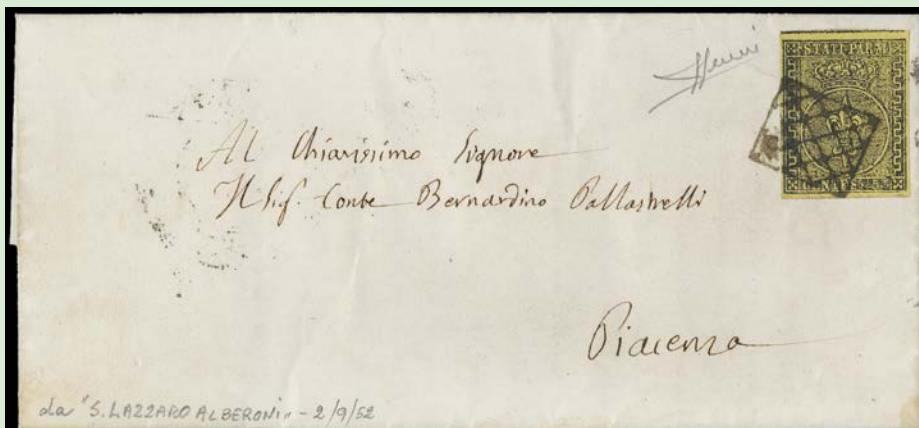 STATI PARM
Al Chiarissimo Signore
Il Sig. Conte Bernardino Pallastrelli
Piacenza
da "S. LAZZARO ALBERONI" - 2/9/52